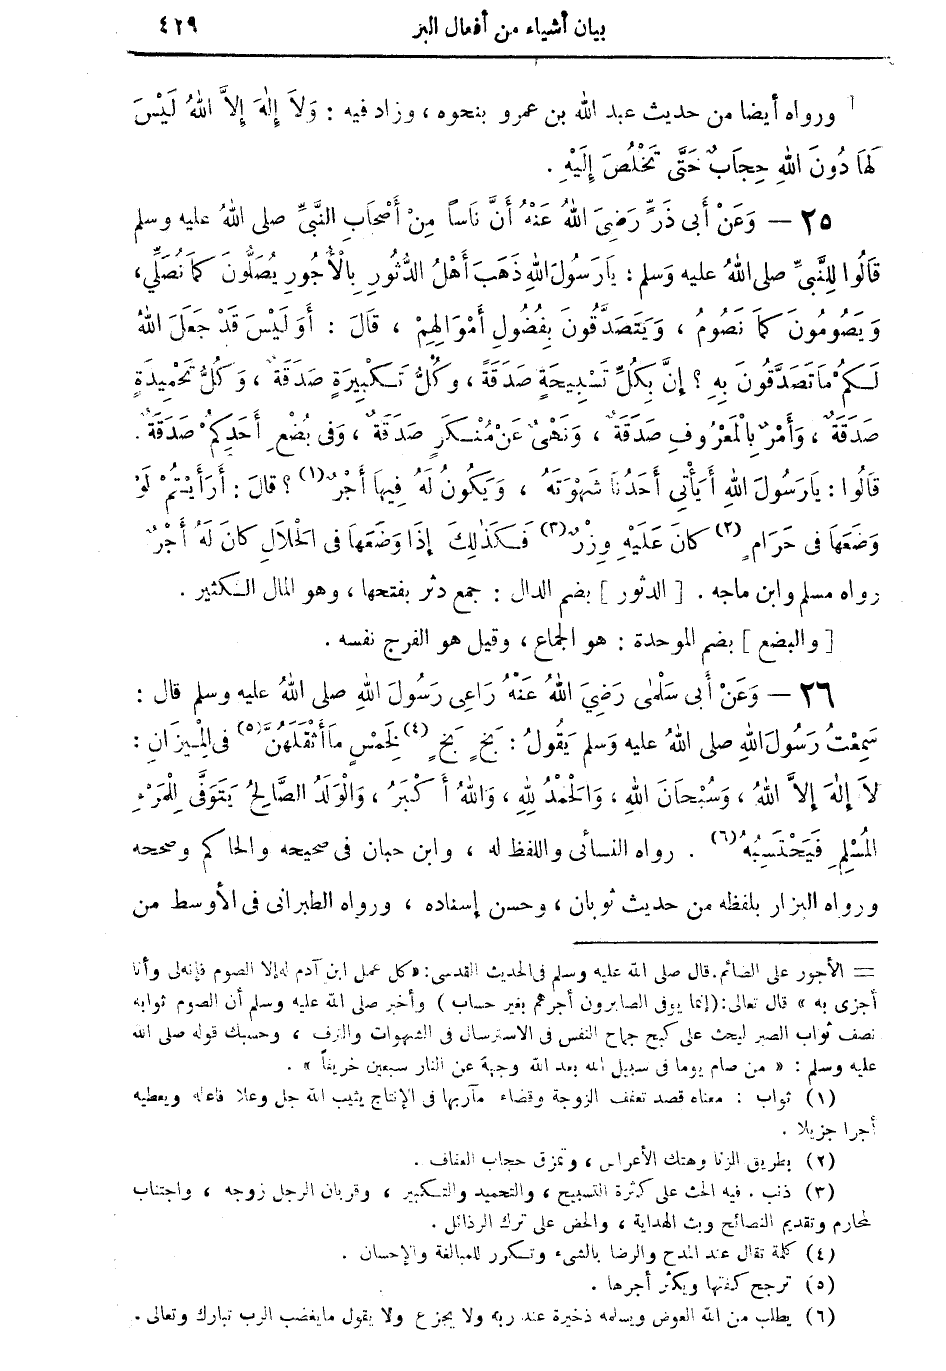 بيان أشياء من أفعال البر ٤٢٩
ورواه أيضا من حديث عبد الله بن عمرو بنحوه ، وزاد فيه : وَلاَ إِلٰهَ إِلاَّ اللهُ لَيْسَ
لَهَا دُونَ اللهِ حِجَابٌ حَتَّى تَخْلُصَ إِلَيْهِ .
٢٥ — وَعَنْ أَبِى ذَرٍّ رَضِىَ اللهُ عَنْهُ أَنَّ نَاساً مِنْ أَصْحَابِ النَّبِىِّ صلى اللهُ عليه وسلم
قَالُوا لِلنَّبِىِّ صلى اللهُ عليه وسلم : يَا رَسُولَ اللهِ ذَهَبَ أَهْلُ الدُّثُورِ بِالْأُجُورِ يُصَلُّونَ كَمَا نُصَلِّى ،
وَيَصُومُونَ كَمَا نَصُومُ ، وَيَتَصَدَّقُونَ بِفُضُولِ أَمْوَالِهِمْ ، قَالَ : أَوَ لَيْسَ قَدْ جَعَلَ اللهُ
لَكُمْ مَا تَصَدَّقُونَ بِهِ ؟ إِنَّ بِكُلِّ تَسْبِيحَةٍ صَدَقَةً ، وَكُلُّ تَكْبِيرَةٍ صَدَقَةٌ ، وَكُلُّ تَحْمِيدَةٍ
صَدَقَةٌ ، وَأَمْرٌ بِالْمَعْرُوفِ صَدَقَةٌ ، وَنَهْىٌ عَنْ مُنْكَرٍ صَدَقَةٌ ، وَفِى بُضْعِ أَحَدِكُمْ صَدَقَةٌ .
قَالُوا : يَا رَسُولَ اللهِ أَيَأْتِى أَحَدُنَا شَهْوَتَهُ ، وَيَكُونُ لَهُ فِيهَا أَجْرٌ (١) ؟ قالَ : أَرَأَيْتُمْ لَوْ
وَضَعَهَا فِى حَرَامٍ (٢) كَانَ عَلَيْهِ وِزْرٌ (٣) فَكَذٰلِكَ إِذَا وَضَعَهَا فِى الْحَلَالِ كَانَ لَهُ أَجْرٌ
رواه مسلم وابن ماجه . [ الدثور ] بضم الدال : جمع دثر بفتحها ، وهو المال الكثير .
[ والبضع ] بضم الموحدة : هو الجماع ، وقيل هو الفرج نفسه .
٢٦ — وَعَنْ أَبِى سَلْمَى رَضِىَ اللهُ عَنْهُ رَاعِى رَسُولَ اللهِ صلى اللهُ عليه وسلم قال :
سَمِعْتُ رَسُولَ اللهِ صلى اللهُ عليه وسلم يَقُولُ : بَخٍ بَخٍ (٤) لِخَمْسٍ مَا أَثْقَلَهُنَّ (٥) فى الْمِيزَانِ :
لاَ إِلٰهَ إِلاَّ اللهُ ، وَسُبْحَانَ اللهِ ، وَالْحَمْدُ لِلهِ ، وَاللهُ أَكْبَرُ ، وَالْوَلَدُ الصَّالِحُ يُتَوَفَّى لِلْمَرْءِ
الْمُسْلِمِ فَيَحْتَسِبُهُ (٦) . رواه النسائى واللفظ له ، وابن حبان فى صحيحه والحاكم وصححه
ورواه البزار بلفظه من حديث ثوبان ، وحسن إسناده ، ورواه الطبرانى فى الأوسط من
= الأجور على الصائم . قال صلى الله عليه وسلم فى الحديث القدسى : « كل عمل ابن آدم له إلا الصوم فإنه لى وأنا
أجزى به » قال تعالى : ( إنما يوفى الصابرون أجرهم بغير حساب ) وأخبر صلى الله عليه وسلم أن الصوم ثوابه
نصف ثواب الصبر ليحث على كبح جماح النفس فى الاسترسال فى الشهوات والترف ، وحسبك قوله صلى الله
عليه وسلم : « من صام يوما فى سبيل الله بعد الله وجهه عن النار سبعين خريفاً » .
(١) ثواب : معناه قصد تعفف الزوجة وقضاء مآربها فى الإنتاج يثيب الله جل وعلا فاعله ويعطيه
أجرا جزيلا .
(٢) بطريق الزنا وهتك الأعراض ، وتمزق حجاب العفاف .
(٣) ذنب . فيه الحث على كثرة التسبيح ، والتحميد والتكبير ، وقربان الرجل زوجه ، واجتناب
المحارم وتقديم النصائح وبث الهداية ، والحض على ترك الرذائل .
(٤) كلمة تقال عند المدح والرضا بالشىء وتكرر للمبالغة والإحسان .
(٥) ترجح كفتها ويكثر أجرها .
(٦) يطلب من الله العوض ويسلمه ذخيرة عند ربه ولا يجزع ولا يقول ما يغضب الرب تبارك وتعالى .